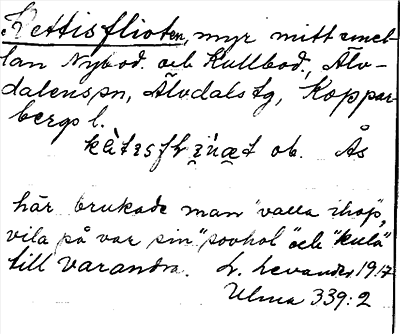 Kettisflioten, myr mitt emel-
lan Nybod. och Kullbod., Älv-
dalens sn, Älvdals tg, Koppar-
bergs l.
ob. Ås
här brukade man "valla ihop",
vila på var sin "sovhol" och "kula"
till varandra. L. Levander 1917
Ulma 339:2